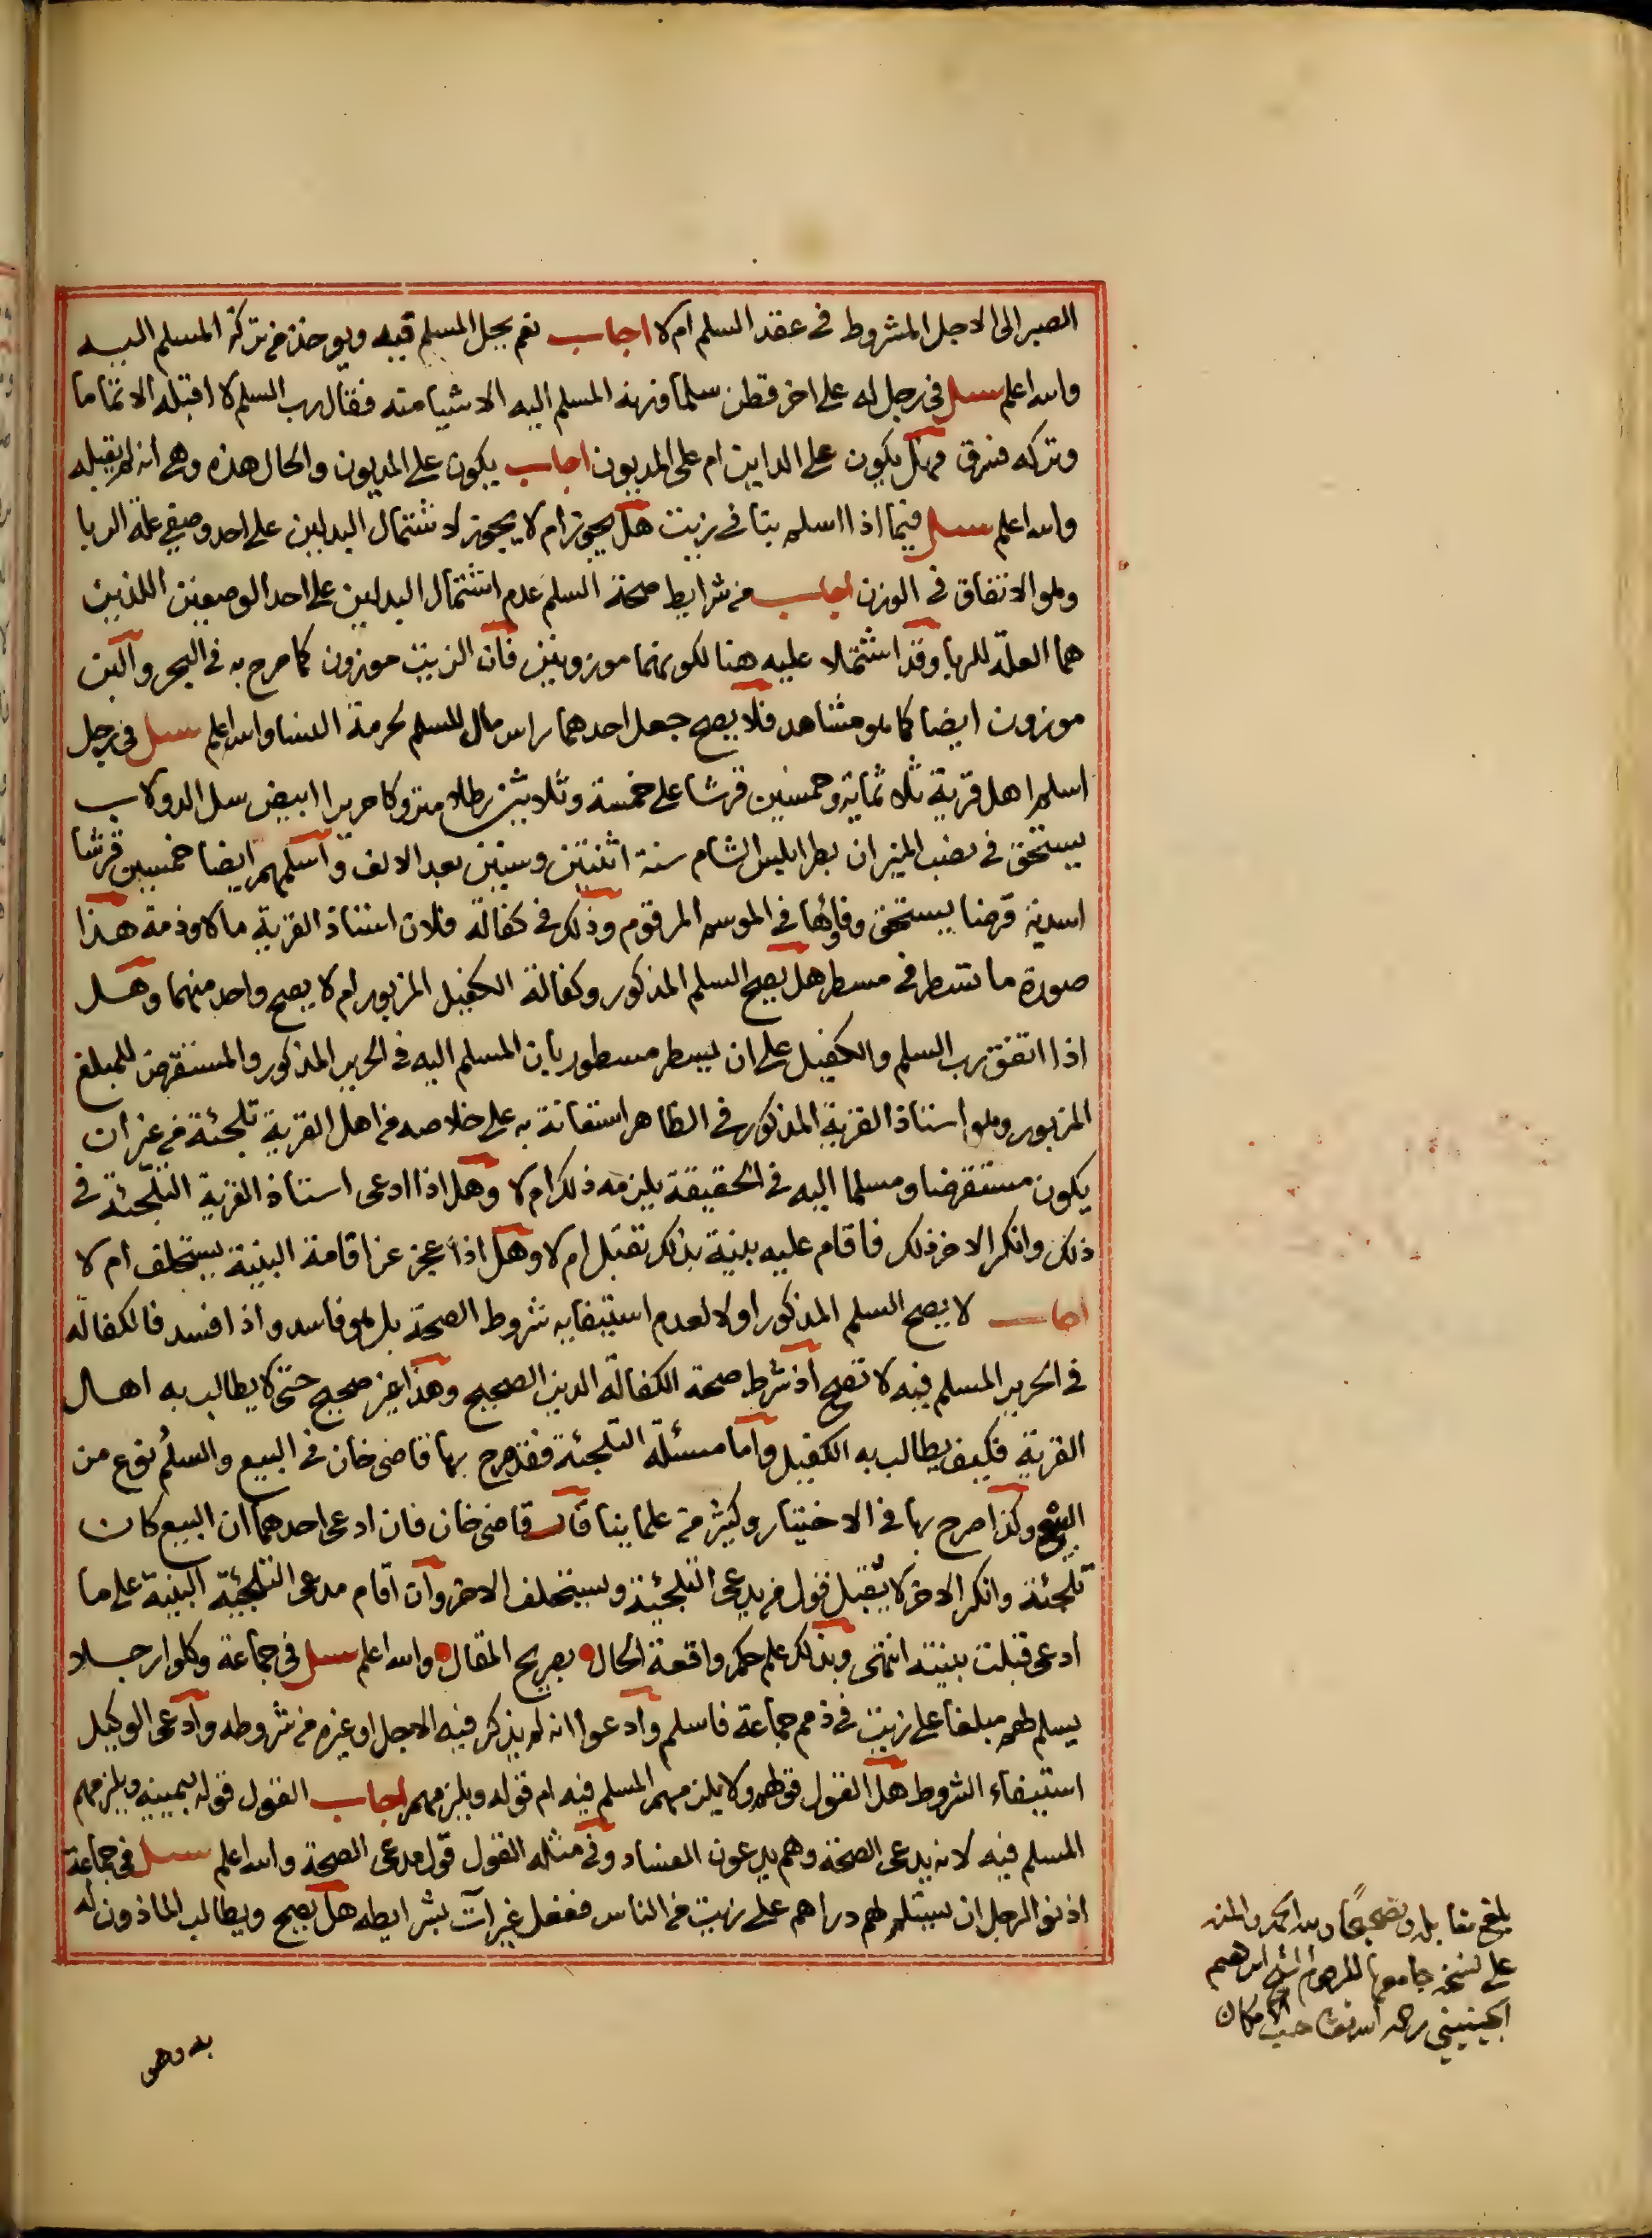 الصبر الى الاجل المشروط في عقد السلم ام لا اجاب نعم يحل المسلم فيه ويوخذ من تركة المسلم اليه
والله اعلم سئل في رجل له على اخر قطن سلما وزنه المسلم اليه الا شيا منه فقال رب السلم لا اقبله الا تماما
وتركه فسرق فهل يكون على الداين ام على المديون اجاب يكون على المديون والحال هذه وهي انه لم يقبله
والله اعلم سئل فيما اذا اسلم بنا في زيت هل يجوز ام لا يجوز لاشتمال البدلين على احد وصفي علة الربا
وهو الاتفاق في الوزن اجاب من شرايط صحة السلم عدم اشتمال البدلين على احد الوصفين اللذين
هما العلة للربا وقد اشتملا عليه هنا لكونهما موزونين فان الزيت موزون كما صرح به في البحر والبن
موزون ايضا كما هو مشاهد فلا يصح جعل احدهما راس مال المسلم لحرمة النسا والله اعلم سئل في رجل
اسلم اهل قرية ثلاثماية وخمسين قرشا على خمسة وثلاثين رطلا متروكا حريرا ابيض سل الدولاب
يستحق في نصب الميزان بطرابليس الشام سنة اثنتين وستين بعد الالف واسلمهم ايضا خمسين قرشا
اسدية قرضا يستحق وفاؤها في الموسم المرقوم وذلك في كفالة فلان استاذ القرية مالا وذمة هذا
صورة ما تسطر في مسطر هل يصح السلم المذكور وكفالة الكفيل المزبور ام لا يصح واحد منهما وهل
اذا اتفق رب السلم والكفيل على ان يسطر مسطور بان المسلم اليه في الحرير المذكور والمستقرض للمبلغ
المزبور وهو استاذ القرية المذكور في الظاهر استعانة به على خلاصه من اهل القرية تلجئة من غير ان
يكون مستقرضا ومسلما اليه في الحقيقة يلزمه ذلك ام لا وهل اذا ادعى استاذ القرية التلجئة في
ذلك وانكر الاخر ذلك فاقام عليه بينة بذلك تقبل ام لا وهل اذا عجز عن اقامة البينة يستحلف ام لا
اجاب لا يصح السلم المذكور اولا لعدم استيفايه شروط الصحة بل هو فاسد واذا فسد فالكفالة
في الحرير المسلم فيه لا تصح اذ شرط صحة الكفالة الدين الصحيح وهذا غير صحيح حتى لا يطالب به اهل
القرية فكيف يطالب به الكفيل واما مسئلة التلجئة فقد صرح بها قاضى خان في البيع والسلم نوع من
البيع وكذا صرح بها في الاختيار وكثير من علماينا قال قاضى خان فان ادعى احدهما ان البيع كان
تلجئة وانكر الاخر لا يقبل قول من يدعى التلجئة ويستحلف الاخر وان اقام مدعى التلجئة البينة على ما
ادعى قبلت بينته انتهى وبذلك علم حكم واقعة الحال بصريح المقال والله اعلم سئل في جماعة وكلوا رجلا
يسلم لهم مبلغا على زيت في ذمم جماعة فاسلم وادعوا انه لم يذكر فيه الاجل او غيره من شروطه وادعى الوكيل
استيفاء الشروط هل القول قولهم ولا يلزمهم المسلم فيه ام قوله ويلزمهم اجاب القول قوله بيمينه ويلزمهم
المسلم فيه لانه يدعى الصحة وهم يدعون الفساد وفي مثله القول قول مدعى الصحة والله اعلم سئل في جماعة
اذنوا لرجل ان يستلم لهم دراهم على زيت من الناس ففعل غير آت بشرايطه هل يصح ويطالب الماذون له
بلغ مقابلة وتصحيحا ولله الحمد والمنه
على نسخة جامعها المرحوم الشيخ ابراهيم
الجينيني رحمه الله تعالى حسب الامكان
به وهو